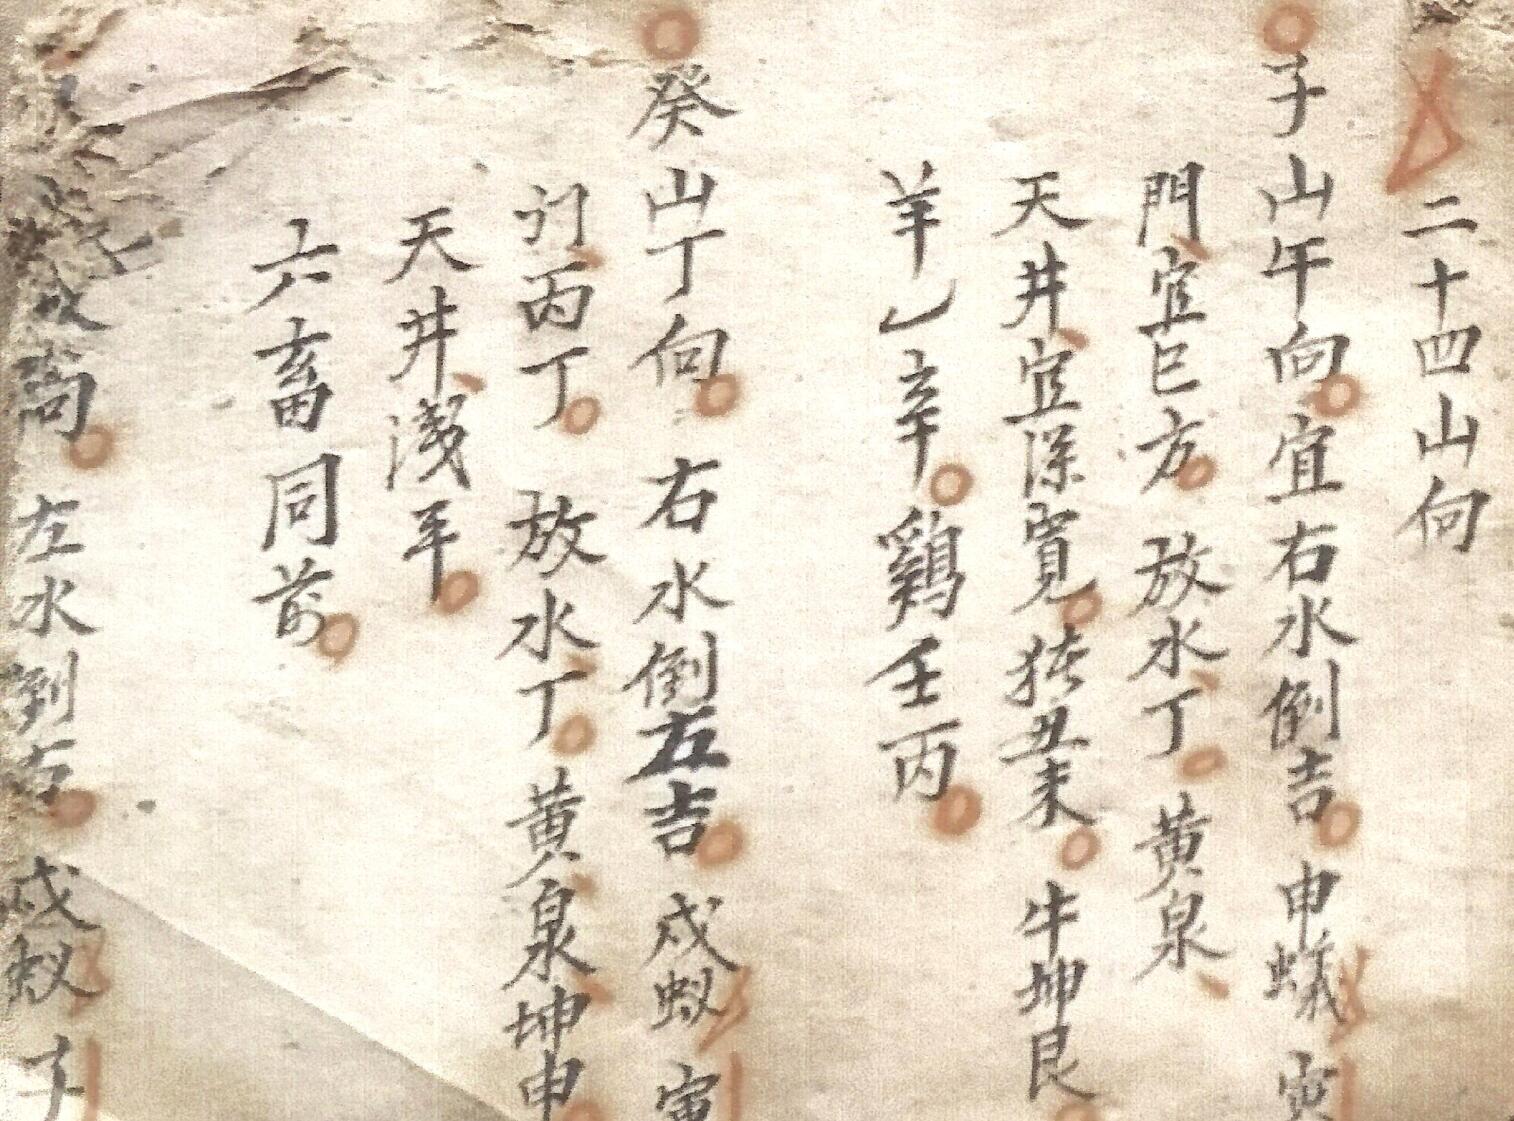 二十四山向
子山午向宜右水倒吉申蟻寅
門宜巳方放水丁黄泉
天井宜深寛猪丑未牛坤艮
羊乙辛鷄壬丙
癸山丁向右水倒左吉戍蚁寅
门丙丁放水丁黄泉坤申
天井淺平
六畜同前
向左水到右戍蚁子